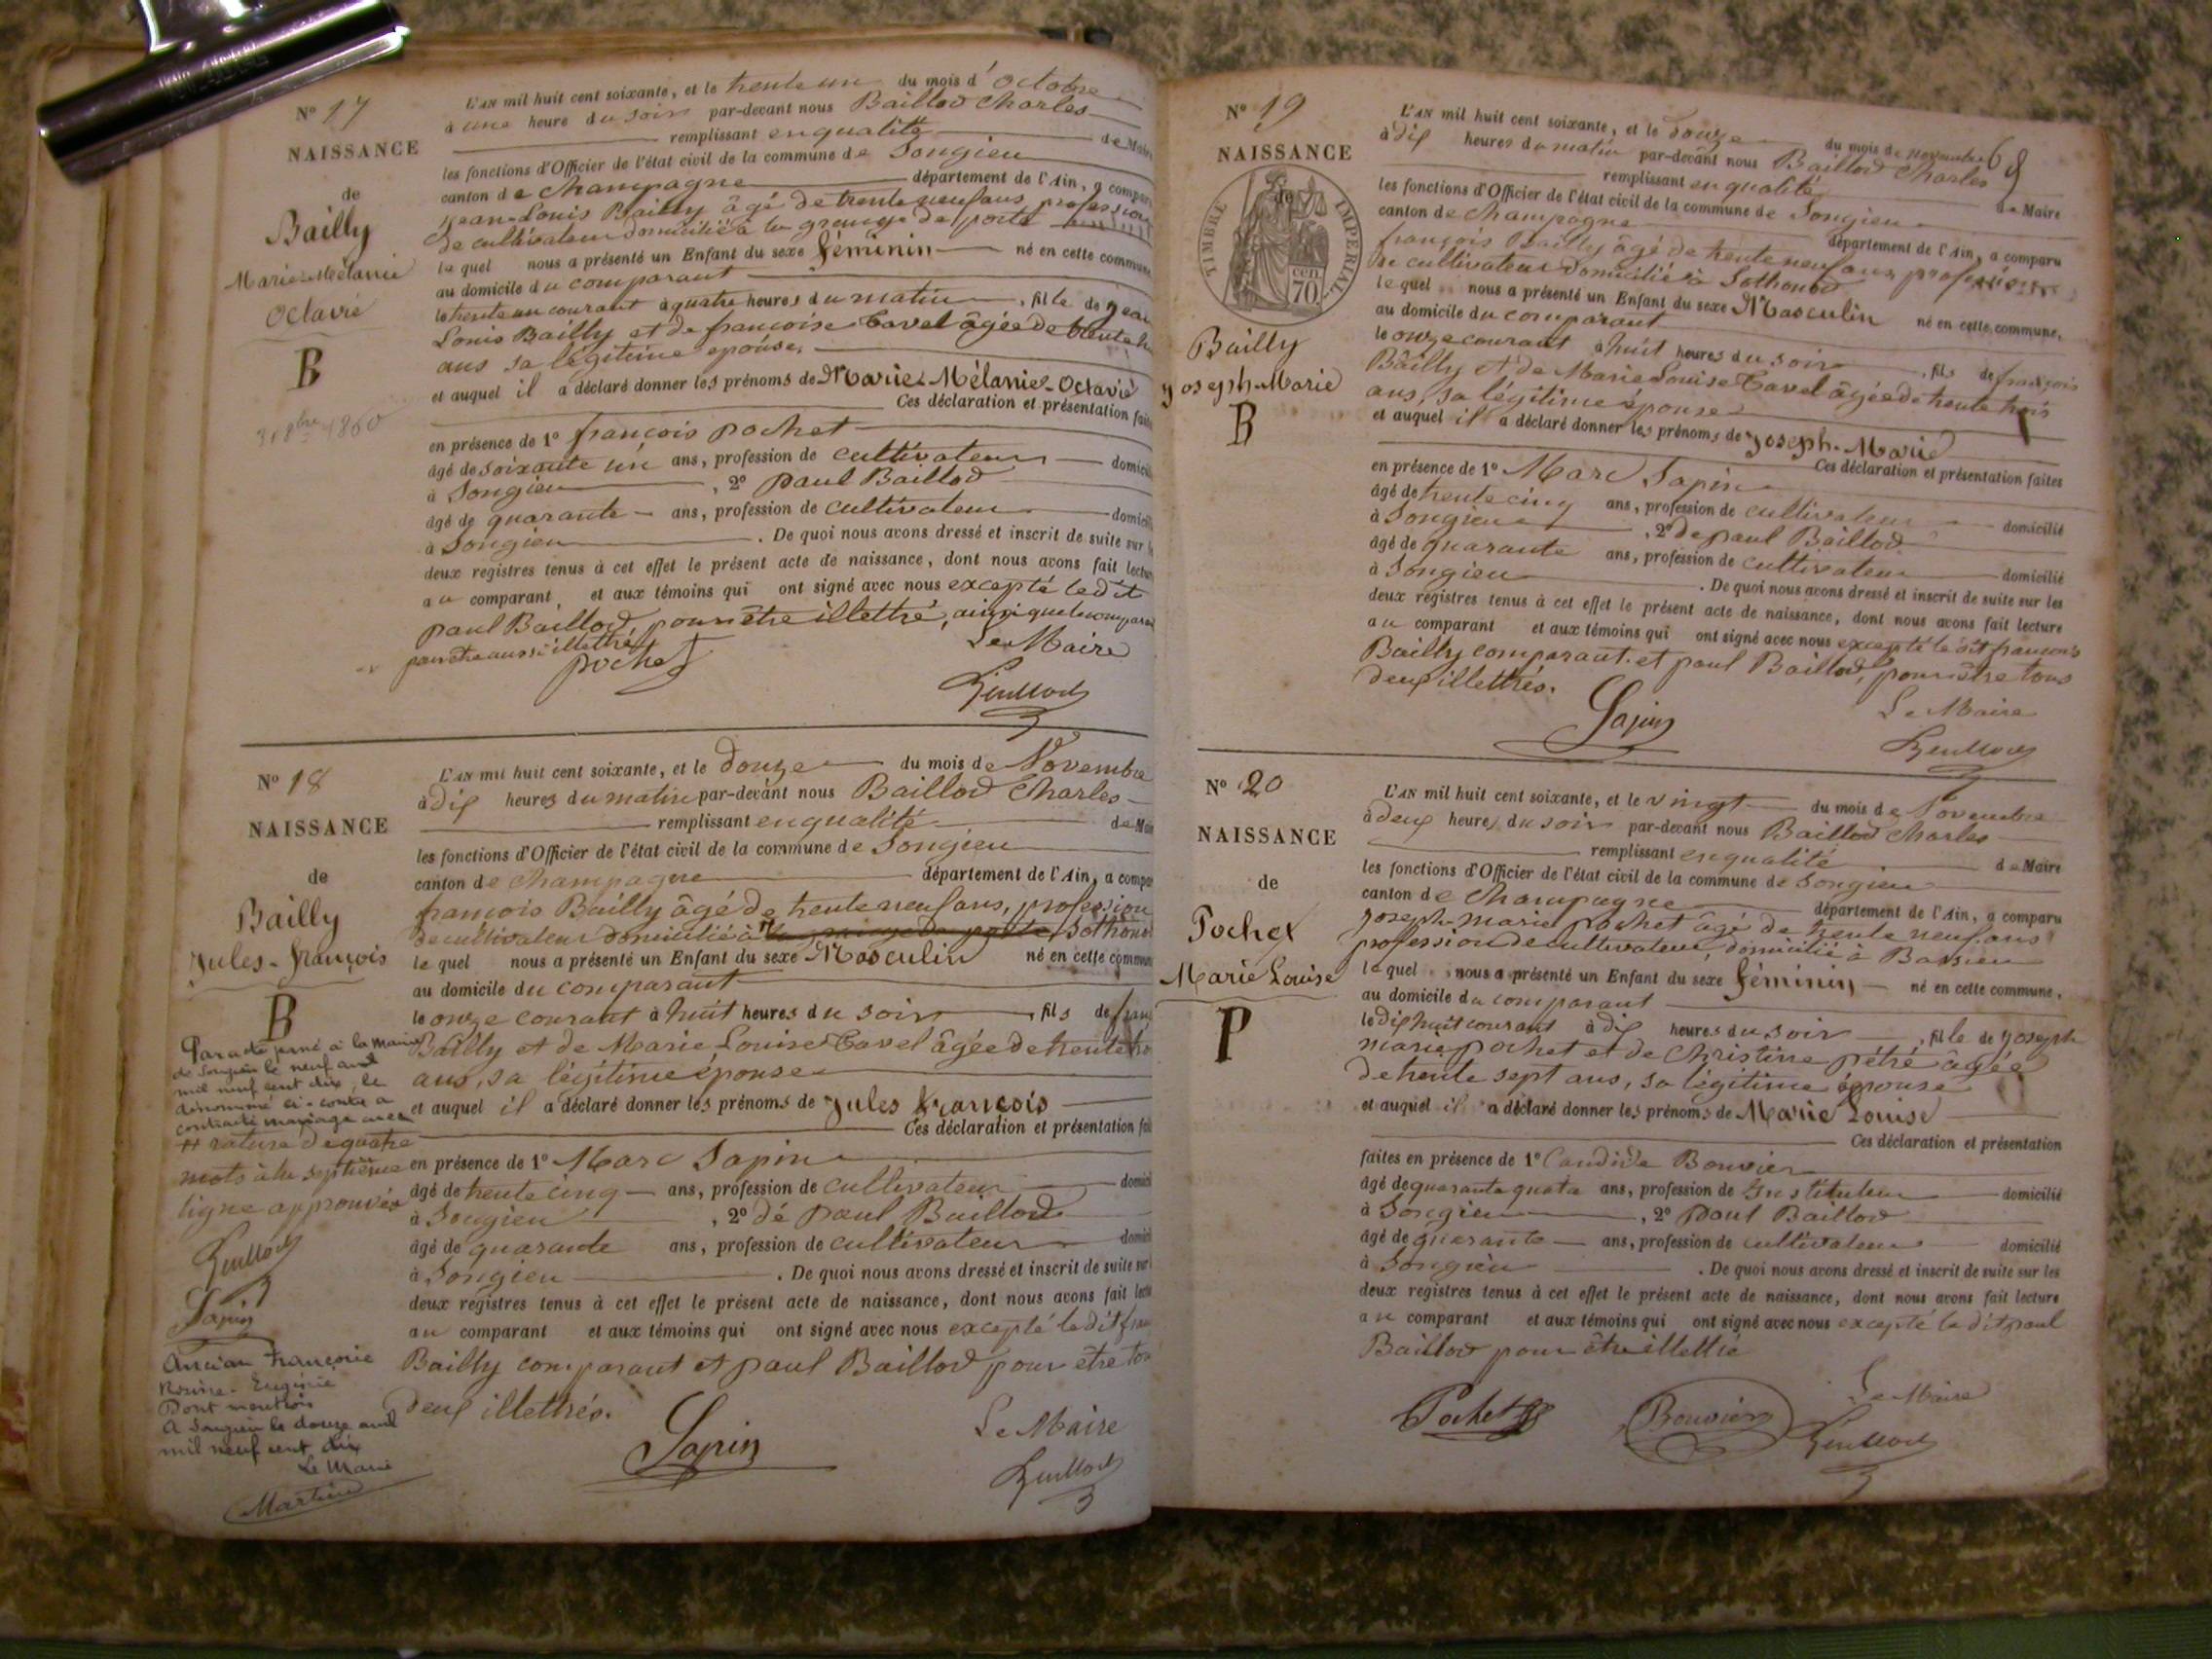 N° 17
NAISSANCE
de
Bailly
Marie-Mélanie
Octavie
B
31 8bre 1860
L'AN mil huit cent soixante, et le trente un du mois d'Octobre
à une heure du soir par-devant nous Baillod Charles
remplissant en qualité de Maire
les fonctions d'Officier de l'état civil de la commune de Songieu
canton de Champagne département de l'Ain, a compa
Jean-Louis Bailly âgé de trente neuf ans profession
de cultivateur domicilié à la grange de porte
lequel nous a présenté un Enfant du sexe féminin né en cette commune
au domicile du comparant
le trente un courant à quatre heures du matin, fille de Jean
Louis Bailly et de françoise Cavel âgée de trente
ans sa légitime epouse,
et auquel il a déclaré donner les prénoms de Marie-Mélanie-Octavie
Ces déclaration et présentation fait
en présence de 1° françois pochet
âgé de soixante un ans, profession de cultivateur domicil
à Songieu, 2° paul Baillod
âgé de quarante ans, profession de cultivateur domicil
à Songieu. De quoi nous avons dressé et inscrit de suite sur l
deux registres tenus à cet effet le présent acte de naissance, dont nous avons fait lectur
au comparant, et aux témoins qui ont signé avec nous excepté ledit
paul Baillod pour être illettré, ainsi que le comparant
pour être aussi illettré
pochet
Le Maire
N° 18
NAISSANCE
de
Bailly
Jules-françois
B
Par acte passé à la Mairie
de Songieu le neuf avril
mil neuf cent dix, le
dénommé ci-contre a
contracté mariage avec
# rature de quatre
mots à la septième
ligne approuvée
Sapin
Ancian Françoise
Rosine-Eugénie
Dont mention
A Songieu le douze avril
mil neuf cent dix
Le Maire
Martin
L'AN mil huit cent soixante, et le douze du mois de Novembre
à dix heures du matin par-devant nous Baillod Charles
remplissant en qualité de Mair
les fonctions d'Officier de l'état civil de la commune de Songieu
canton de Champagne département de l'Ain, a compa
françois Bailly âgé de trente neuf ans, profession
de cultivateur domicilié à # la grange de porte, Sothonod
lequel nous a présenté un Enfant du sexe Masculin né en cette commun
au domicile du comparant
le onze courant à huit heures du soir, fils de fran
Bailly et de Marie Louise Cavel âgée de trente tro
ans, sa légitime épouse
et auquel il a déclaré donner les prénoms de Jules François
Ces déclaration et présentation fai
en présence de 1° Marc Sapin
âgé de trente cinq ans, profession de cultivateur domicil
à Songieu, 2° de paul Baillod
âgé de quarante ans, profession de cultivateur domicil
à Songieu. De quoi nous avons dressé et inscrit de suite sur l
deux registres tenus à cet effet le présent acte de naissance, dont nous avons fait lectu
au comparant et aux témoins qui ont signé avec nous excepté le dit fran
Bailly comparant et paul Baillod pour être tou
deux illettrés.
Sapin
Le Maire
N° 19
NAISSANCE
de
TIMBRE IMPERIAL
CEN. 70
Bailly
Joseph-Marie
B
68
L'AN mil huit cent soixante, et le douze du mois de novembre
à dix heures du matin par-devant nous Baillod Charles
remplissant en qualité de Maire
les fonctions d'Officier de l'état civil de la commune de Songieu
canton de Champagne département de l'Ain, a comparu
françois Bailly âgé de trente neuf ans, profession
de cultivateur domicilié à Sothonod
lequel nous a présenté un Enfant du sexe Masculin né en cette commune,
au domicile du comparant
le onze courant à huit heures du soir, fils de françois
Bailly et de Marie Louise Cavel âgée de trente trois
ans, sa légitime épouse
et auquel il a déclaré donner les prénoms de Joseph-Marie
Ces déclaration et présentation faites
en présence de 1° Marc Sapin
âgé de trente cinq ans, profession de cultivateur domicilié
à Songieu, 2° de paul Baillod
âgé de quarante ans, profession de cultivateur domicilié
à Songieu. De quoi nous avons dressé et inscrit de suite sur les
deux registres tenus à cet effet le présent acte de naissance, dont nous avons fait lecture
au comparant et aux témoins qui ont signé avec nous excepté le dit françois
Bailly comparant et paul Baillod, pour être tous
deux illettrés.
Sapin
Le Maire
N° 20
NAISSANCE
de
Pochet
Marie Louise
P
L'AN mil huit cent soixante, et le vingt du mois de Novembre
à deux heures du soir par-devant nous Baillod Charles
remplissant en qualité de Maire
les fonctions d'Officier de l'état civil de la commune de Songieu
canton de Champagne département de l'Ain, a comparu
Joseph-marie pochet âgé de trente neuf ans
profession de cultivateur, domicilié à Bassieu
lequel nous a présenté un Enfant du sexe féminin né en cette commune,
au domicile du comparant
le dix huit courant à dix heures du soir, fille de Joseph
marie pochet et de Christine pétré âgée
de trente sept ans, sa légitime épouse
et auquel il a déclaré donner les prénoms de Marie Louise
Ces déclaration et présentation
faites en présence de 1° Candide Bouvier
âgé de quarante quatre ans, profession de Instituteur domicilié
à Songieu, 2° paul Baillod
âgé de quarante ans, profession de cultivateur domicilié
à Songieu. De quoi nous avons dressé et inscrit de suite sur les
deux registres tenus à cet effet le présent acte de naissance, dont nous avons fait lecture
au comparant et aux témoins qui ont signé avec nous excepté le dit paul
Baillod pour être illettré
Pochet
Bouvier
Le Maire